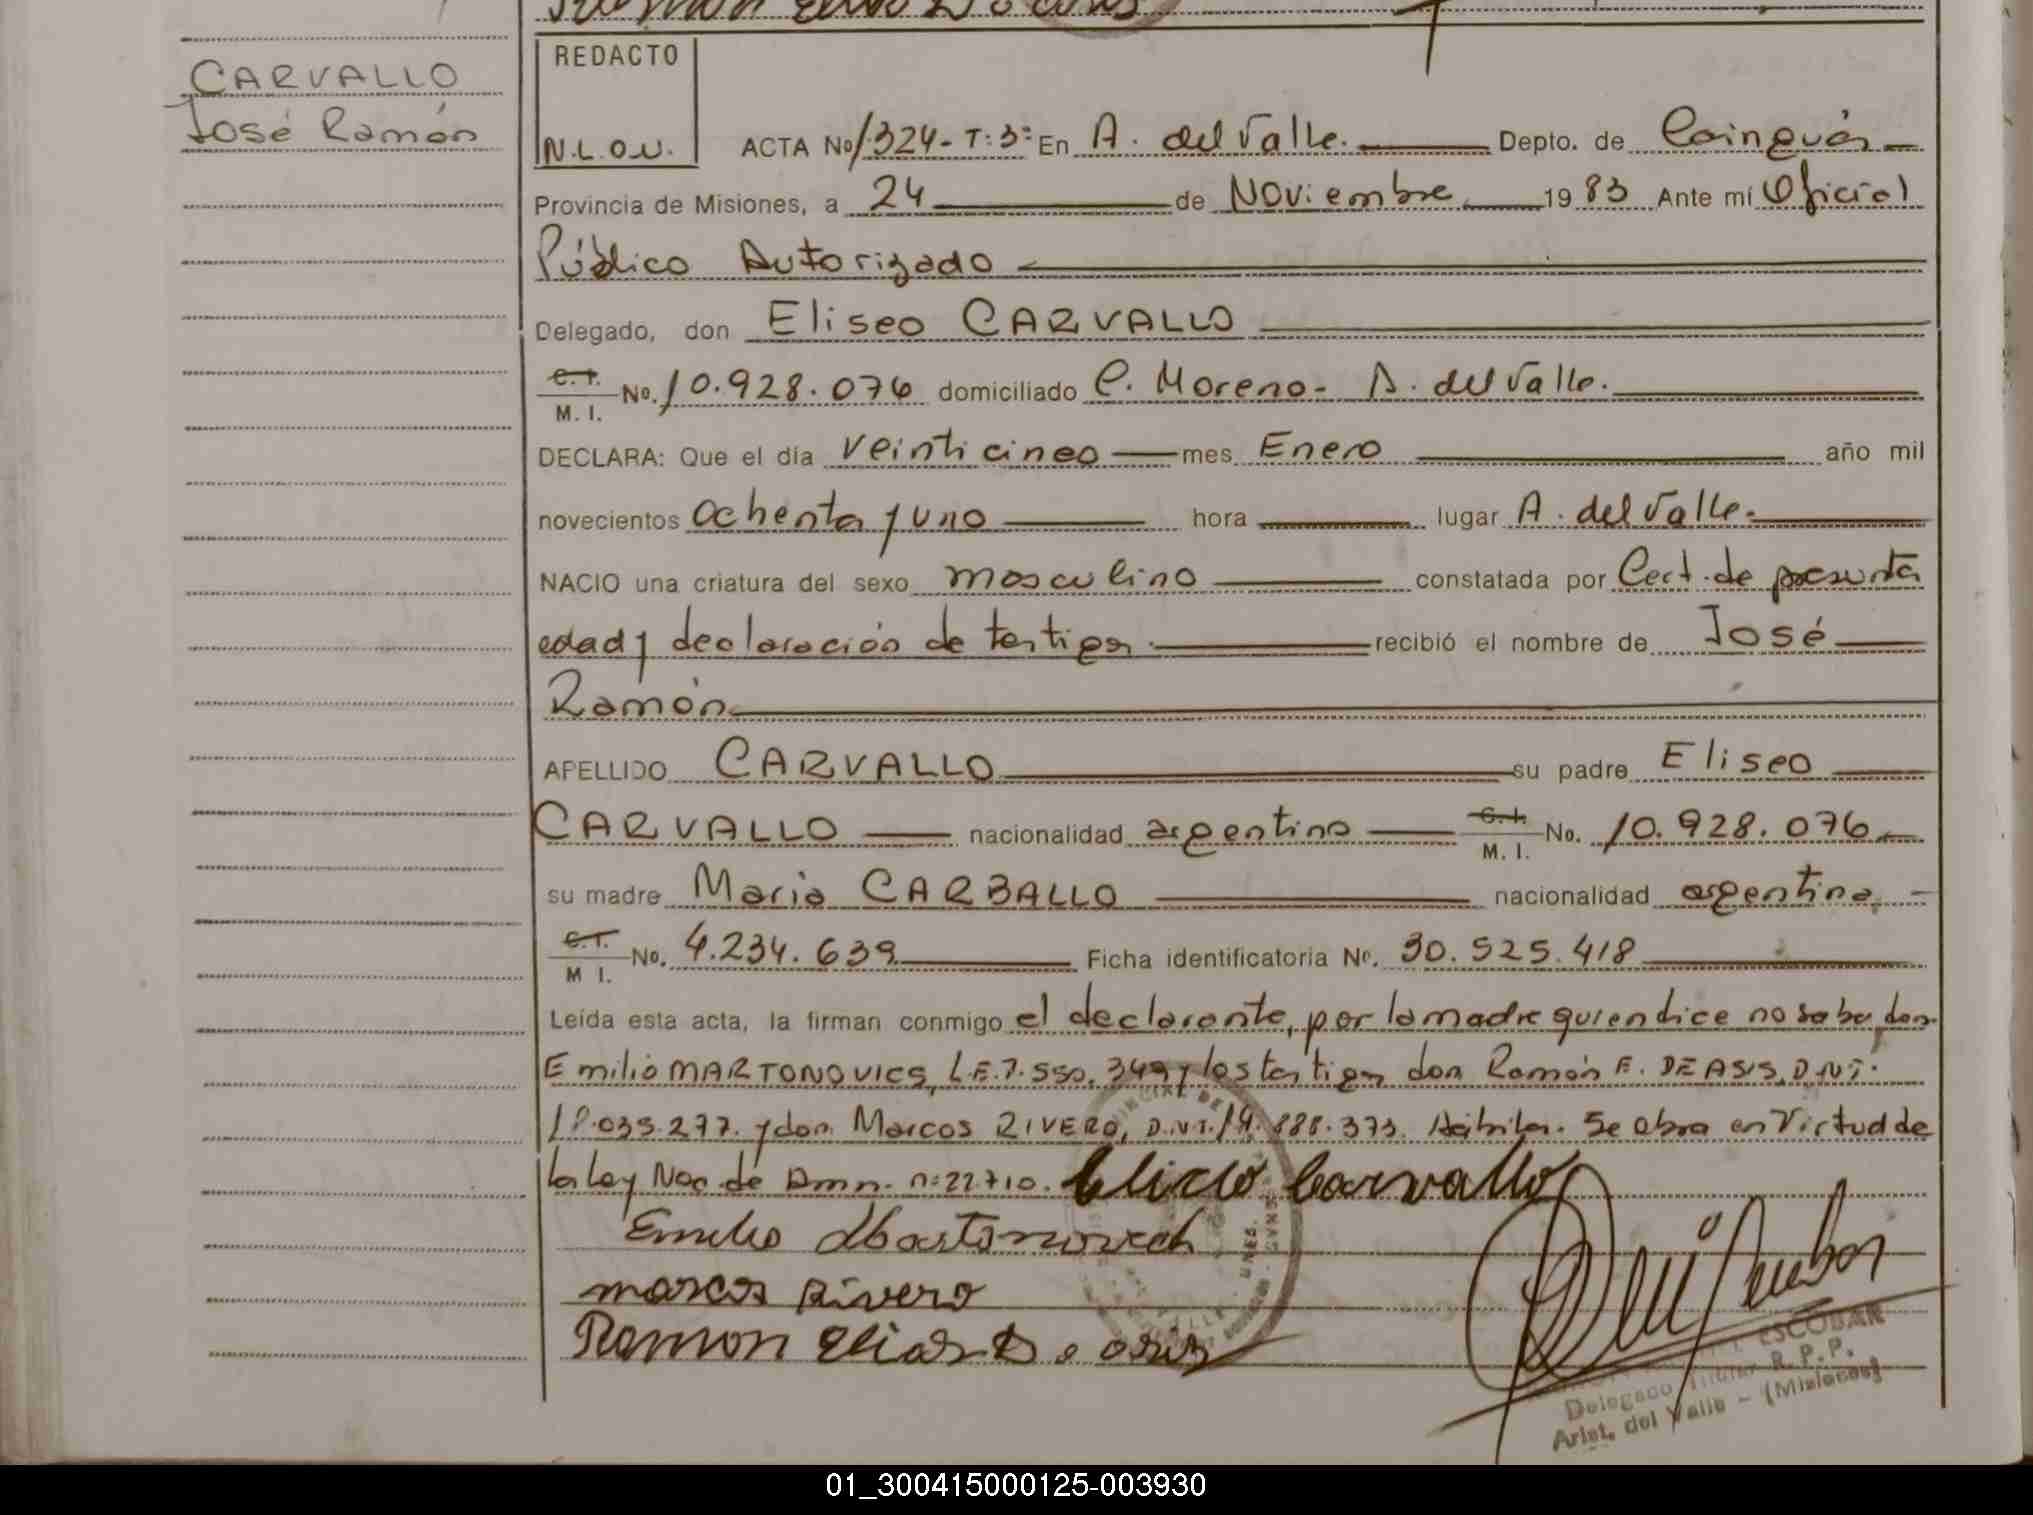 CARVALLO
José Ramón
REDACTO
N.L.O.U.
ACTA No 1324- T: 3º En A. del Valle. Depto. de Cainguás
Provincia de Misiones, a 24 de Noviembre 1983 Ante mí Oficial
Público Autorizado
Delegado, don Eliseo CARVALLO
C.I. M.I. No. 10.928.076 domiciliado C. Moreno- A. del Valle.
DECLARA: Que el día veinticinco mes Enero año mil
novecientos ochenta y uno hora lugar A. del Valle.
NACIO una criatura del sexo masculino constatada por Cert. de presunta
edad y declaración de testigos. recibió el nombre de José
Ramón
APELLIDO CARVALLO su padre Eliseo
CARVALLO nacionalidad argentino C.I. M.I. No. 10.928.076
su madre Maria CARBALLO nacionalidad argentina,
C.I. M I. No. 4.234.639 Ficha identificatoria Nº. 30.525.418
Leída esta acta, la firman conmigo el declarante, por la madre quien dice no saber, don
Emilio MARTONOVICS, L.E. 7.550.349 y los testigos don Ramón E. DE ASIS, D.N.I.
035.277. y don Marcos RIVERO, D.N.I. 373. Hábiles. Se obra en Virtud de
la Ley Nac. de Amn. nº 22710. Eliseo Carvallo
Emilio
marcos Rivero
Ramon Elias De asis
ESCOBAR
Delegado Titular R.P.P.
Arist. del Valle - (Misiones)
01_300415000125-003930